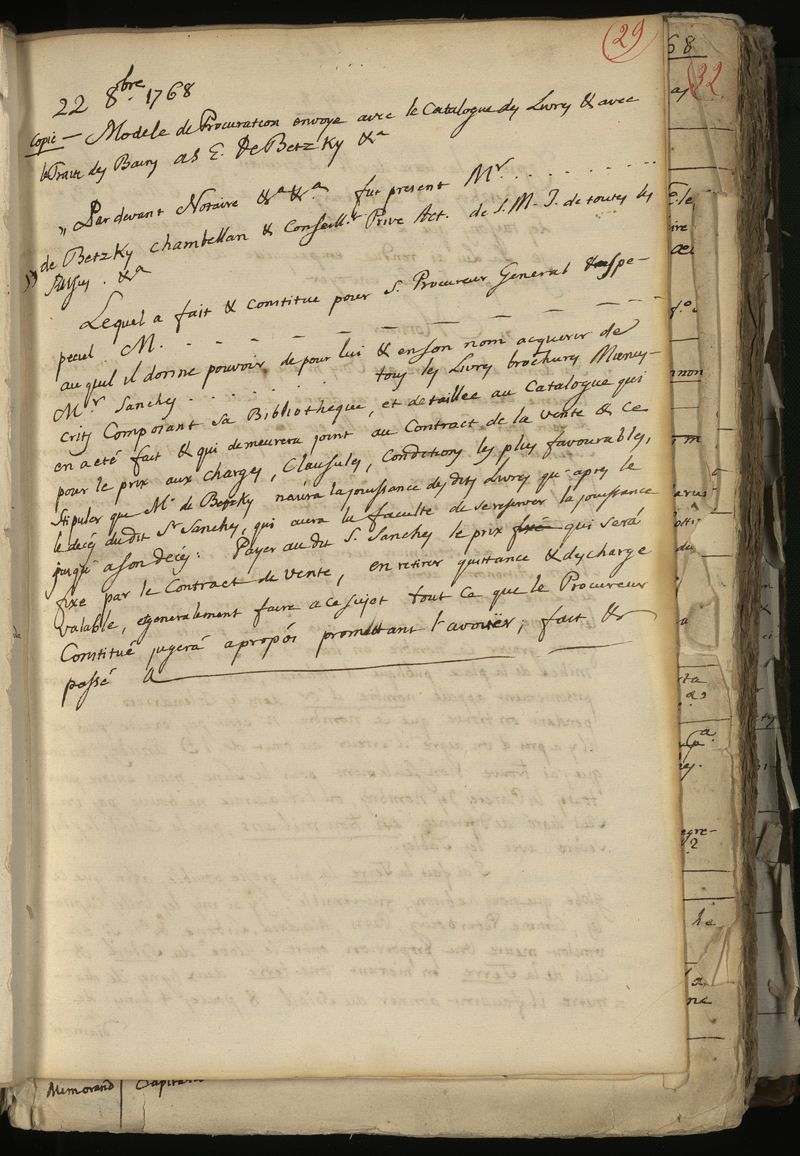 29
22 8bre 1768
Copie — Modele de Procuration envoyé avec le Catalogue des Livres & avec
le Traité des Bains a S. E. De Betzky &a
„ Par devant Notaire &a &a fut present Mr. . . . . . . . . . .
„ de Betzky Chambellan & Conseill.r Privé Act. de S. M. I. de toutes les
Russies . &a
Lequel a fait & constitué pour S. Procureur General & spe-
pecial M. — — — — — — — — —
au quel il donne pouvoir de pour lui & en son nom acquerir de
Mr Sanches . . . . . . . . tous les Livres brochures Manus-
crits Composant sa Bibliotheque, et detaillée au Catalogue qui
en a eté fait & qui demeurera joint au Contract de la vente & ce
pour le prix aux charges, Clausules, Conditions les plus favourables,
stipuler que Mr de Betzky n'aura la jouissance des dits Livres qu'apres le
le decés du dit Sr Sanches, qui aura la faculté de se reserver la jouissance
jusqu'a son decés: Payer au dit S. Sanches le prix fixé qui será
fixe par le Contract de vente, en retirer quittance & descharge
valable, e generalement faire a ce sujet tout ce que le Procureur
Constitué jugerá apropós promettant l'avouër; fait &
passé a
68
32
Memorand